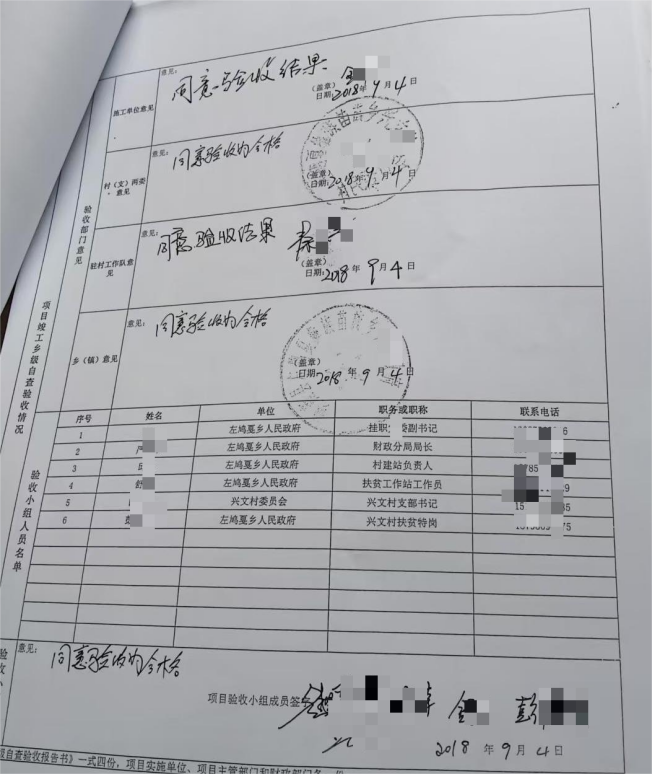 项目竣工乡级自查验收情况
验收部门意见
施工单位意见
意见：
同意验收结果
（盖章）
日期：2018年9月4日
村（支）两委
意见
意见：
同意验收为合格
（盖章）
日期：2018年9月4日
驻村工作队意
见
意见：
同意验收结果
（盖章）
日期：2018年9月4日
乡（镇）意见
意见：
同意验收为合格
（盖章）
日期：2018年9月4日
验收小组人员名单
序号 姓名 单位 职务或职称 联系电话
1 左鸠戛乡人民政府 挂职 委副书记 6
2 左鸠戛乡人民政府 财政分局局长
3 左鸠戛乡人民政府 村建站负责人 785
4 舒 左鸠戛乡人民政府 扶贫工作站工作员 9
5 兴文村委员会 兴文村支部书记 15 35
6 左鸠戛乡人民政府 兴文村扶贫特岗 75
意见：
同意验收为合格
项目验收小组成员签
彭
2018年9月4日
级自查验收报告书》一式四份，项目实施单位、项目主管部门和财政部门各